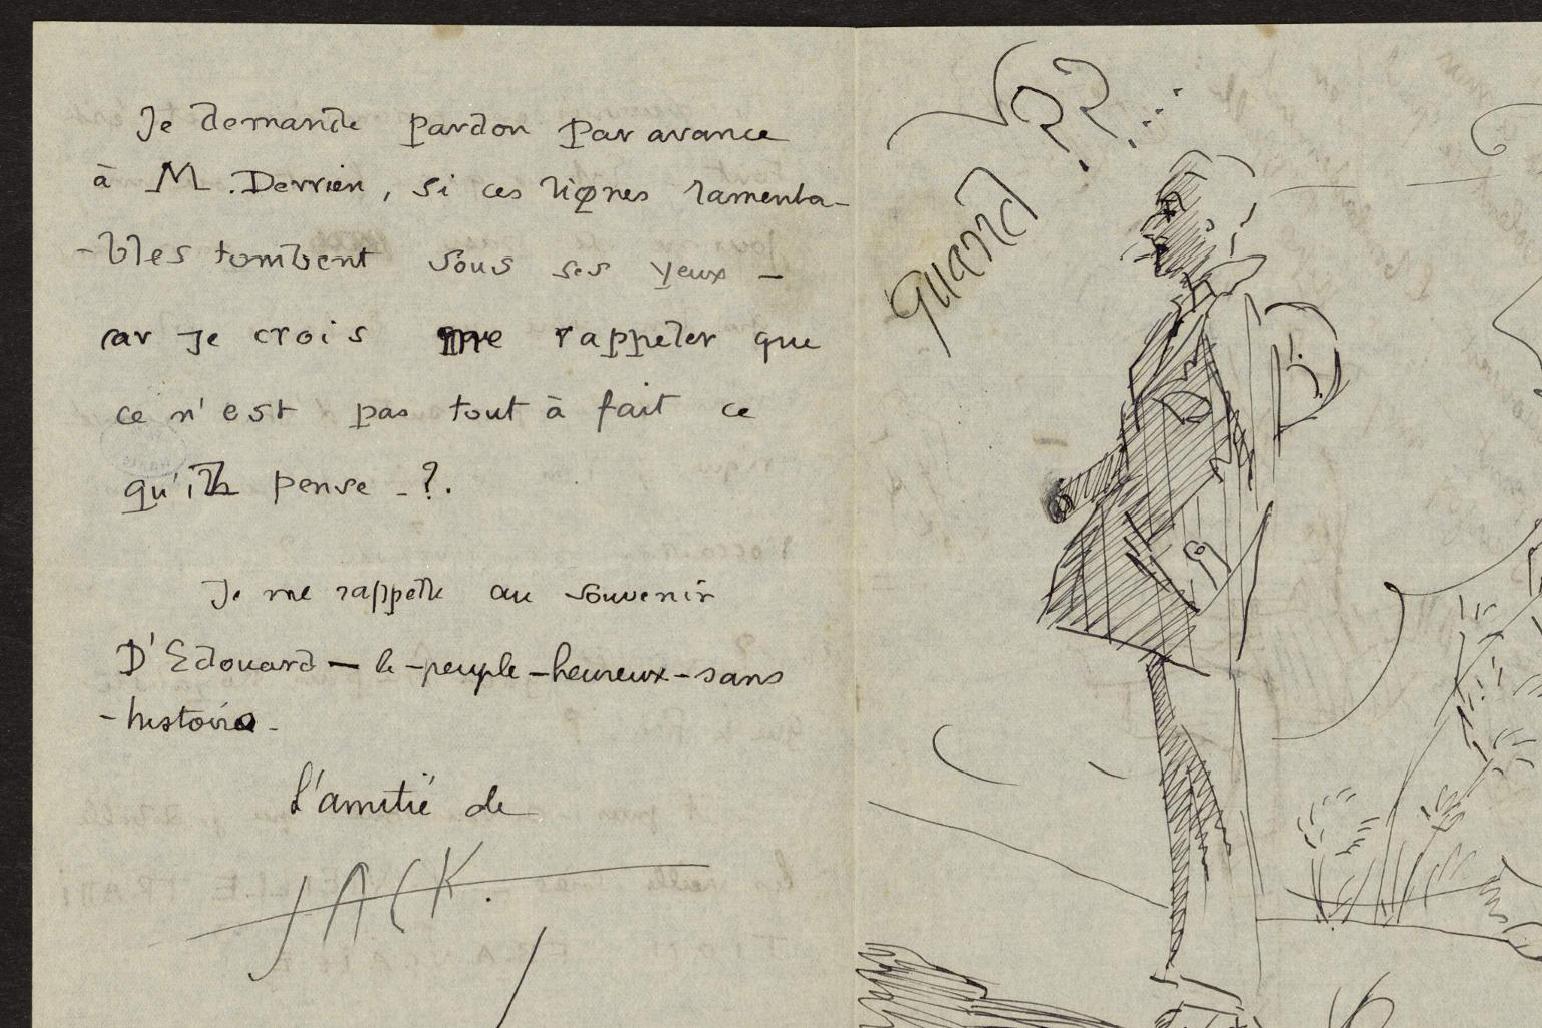 Je demande pardon par avance
à M. Derrien, si ces lignes lamenta-
-bles tombent sous ses yeux -
car je crois me rappeler que
ce n'est pas tout à fait ce
qu'il pense - ?.
Je me rappelle au souvenir
D'Edouard - le - peuple - heureux - sans
- histoire -
L'amitié de
JACK.
quand ?? ...